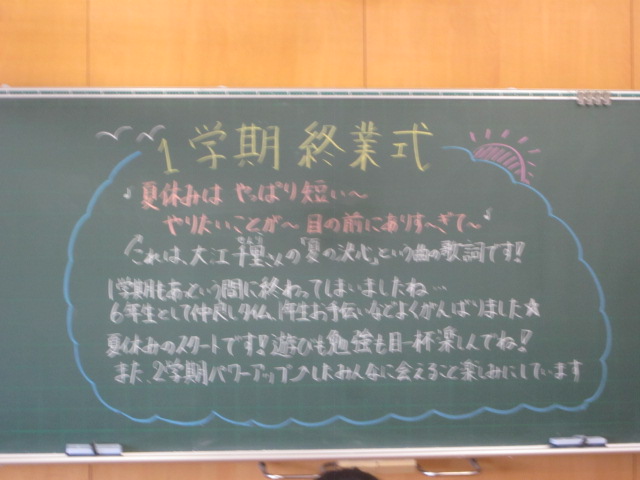 1学期 終業式
♪夏休みは やっぱり短い～
やりたいことが～ 目の前にありす～ぎて～♪
これは、大江千里さんの「夏の決心」という曲の歌詞です!
1学期もあという間に終わってしまいましたね…
6年生として仲良しタイム、1年生お手伝いなどよくがんばりました★
夏休みのスタートです!遊びも勉強も目一杯楽しんでね!
また、2学期パワーアップ♪したみんなに会えること楽しみにしています